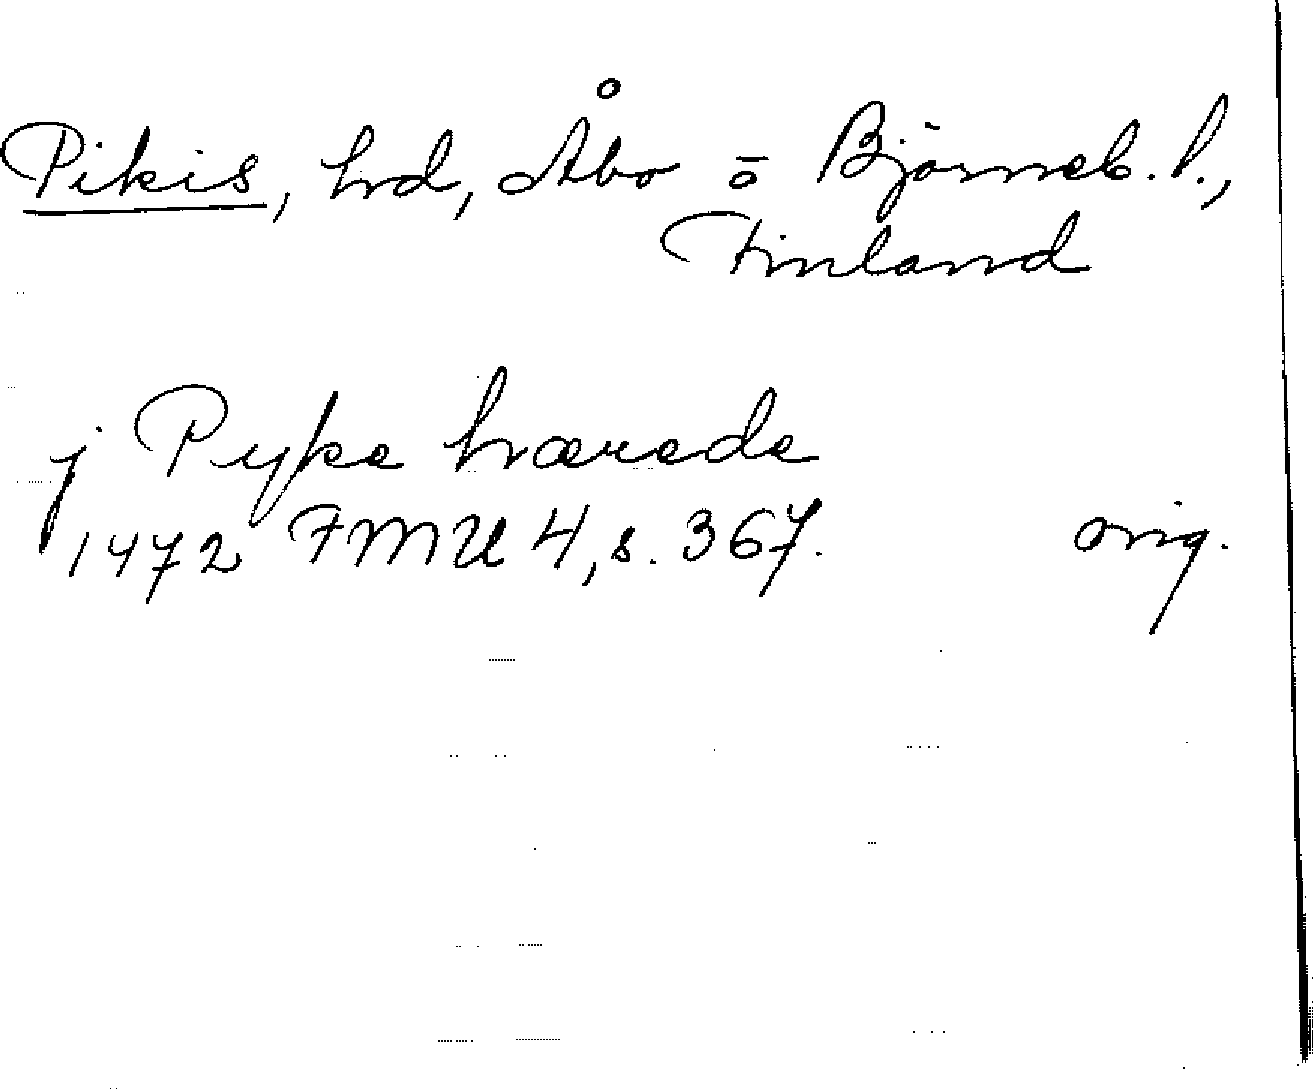 Pikis, hd, Åbo o Björneb. l.,
Finland
j Pyke hærede
1472 FMU 4, s. 367. orig.